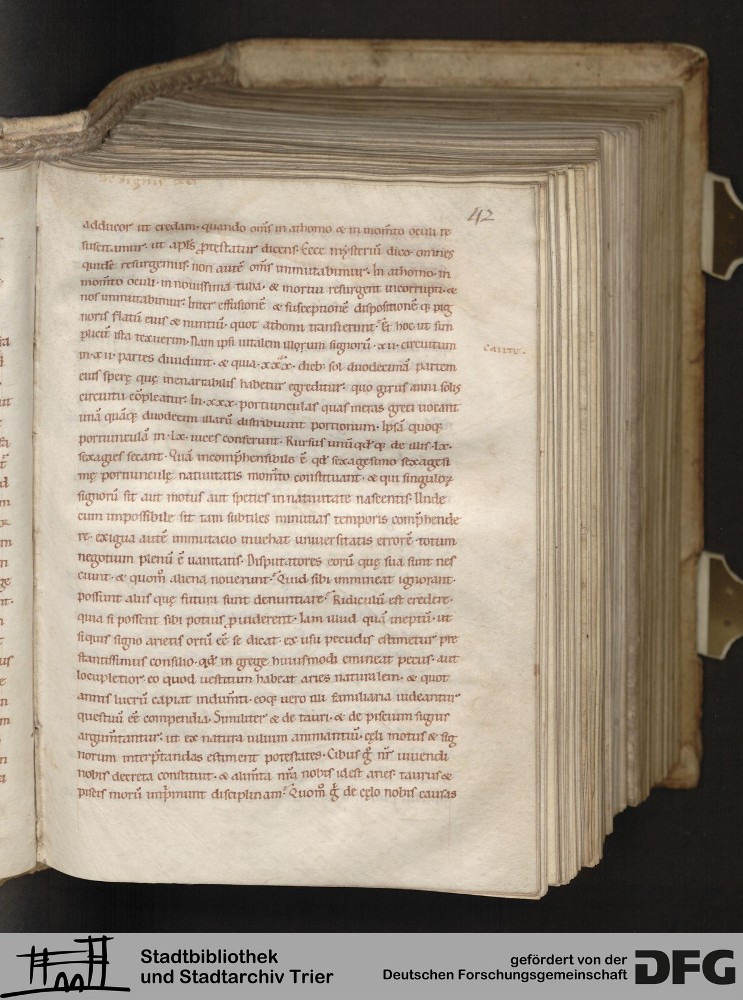 42
adducor ut credam· quando om̅s in athomo & in mom̅to oculi re
suscitamur· ut apl̅s ꝓtestatur dicens· Ecce mẏsteriu̅ dico· omnes
quide̅ resurgemus· non aute̅ om̅s inmutabimur· In athomo· in
mom̅to oculi· in nouissima tuba· & mortui resurgent incorrupti· &
nos inmutabimur· Inter effusione̅ & susceptione̅ dispositione̅ q; pig
noris flatu̅ eius & nuntiu̅· quot athomi transierunt· Et hoc ut sim
plicit̅ ista texuerim· Nam ipsi uitalem illorum signoru̅ ·xii· circuitum
in ·xii· partes diuidunt· & quia ·xxx· dieb; sol duodecima̅ partem
eius sperę quę inenarrabilis habetur egreditur· quo girus anni solis
circuitu co̅pleatur· In ·xxx· portiunculas quas miras greci uocant
una̅ qua̅q; duodecim illaru̅ distribuunt portionum· Ipsa̅ quoq;
portiuncula̅ in ·lx· uices conferunt· Rursus unu̅ qd̅q; de illis ·lx·
sexagies secant· Qua̅ incomp̅hensibile e̅ qd̅ sexagesimo sexagesi
mę portiunculę natiuitatis mom̅to constituant· & qui singuloꝝ
signoru̅ sit aut motus aut species in natiuitate nascentis· Unde
cum impossibile sit tam subtiles minutias temporis comp̅hende
re· exigua aute̅ inmutacio inuehat uniuersitatis errore̅· totum
negotium plenu̅ e̅ uanitatis· Disputatores eoru̅ quę sua sunt nes
ciunt· & quom̅ aliena nouerunt· Quid sibi immineat ignorant·
possunt aliis quę futura sunt denuntiare· Ridiculu̅ est credere·
quia si possent sibi potius ꝓuiderent· Iam illud qua̅ ineptu̅· ut
siquis signo arietis ortu̅ e̅e se dicat· ex usu pecudis estimetur pre
stantissimus consilio· qd̅ in grege huiusmodi emineat pecus· aut
locupletior· eo quod uestitum habeat aries naturalem· & quot
annis lucru̅ capiat indum̅ti· eoq; uero illi familiaria uideantur
questuu̅ e̅e compendia· Similiter & de tauri· & de pisciu̅m signis
argum̅tantur· ut ex natura uilium animantiu̅· cęli motus & sig
norum interp̅tandas estiment potestates· Cibus g̅ nr̅ uiuendi
nobis decreta constituit· & alim̅ta nr̅a nobis idest aries taurus &
pisces moru̅ inp̅munt disciplinam· Quom̅ g̅ de cęlo nobis causas
Stadtbibliothek
und Stadtarchiv Trier
gefördert von der
Deutschen Forschungsgemeinschaft
DFG